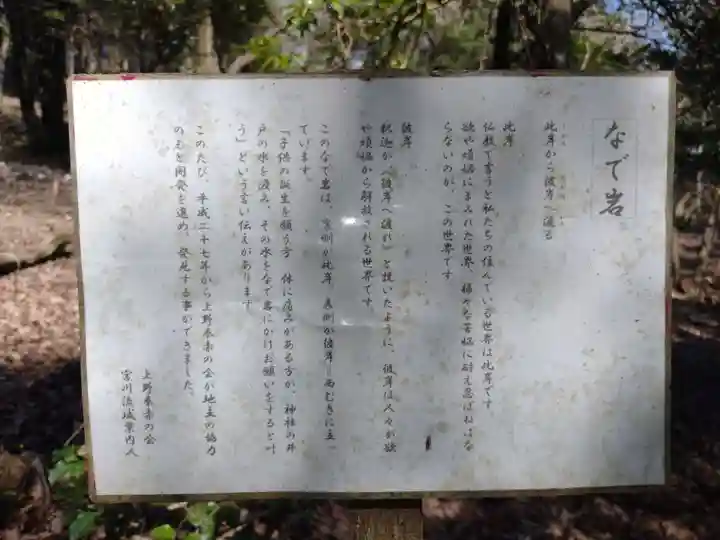 なで岩
しがん ひがん
此岸から彼岸へ渡る
此岸
仏教で言うと私たちの住んでいる世界は此岸です。
欲や煩悩にまみれた世界、様々な苦悩に耐え忍ばねばな
らないのが、この世界です
彼岸
釈迦が〈彼岸へ渡れ〉と説いたように、彼岸は人々が欲
や煩悩から解放される世界です。
このなで岩は、東側が此岸 裏側が彼岸 西むきに立っ
ています。
「子供の誕生を願う方 体に痛みがある方が、神社の井
戸の水を汲み、その水をなで岩にかけお願いをすると叶
う」という言い伝えがあります
このたび、平成二十七年から上野奉楽の会が地主の協力
のもと開発を進め、発見する事ができました。
上野奉楽の会
宮川流域案内人